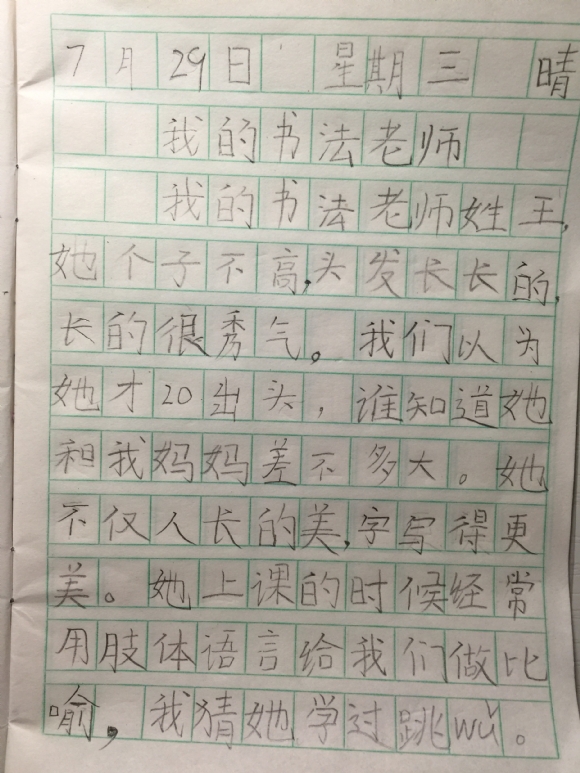 7月29日 星期三 晴
我的书法老师
我的书法老师姓王,
她个子不高,头发长长的,
长的很秀气。我们以为
她才20出头,谁知道她
和我妈妈差不多大。她
不仅人长的美,字写得更
美。她上课的时候经常
用肢体语言给我们做比
喻,我猜她学过跳wǔ。